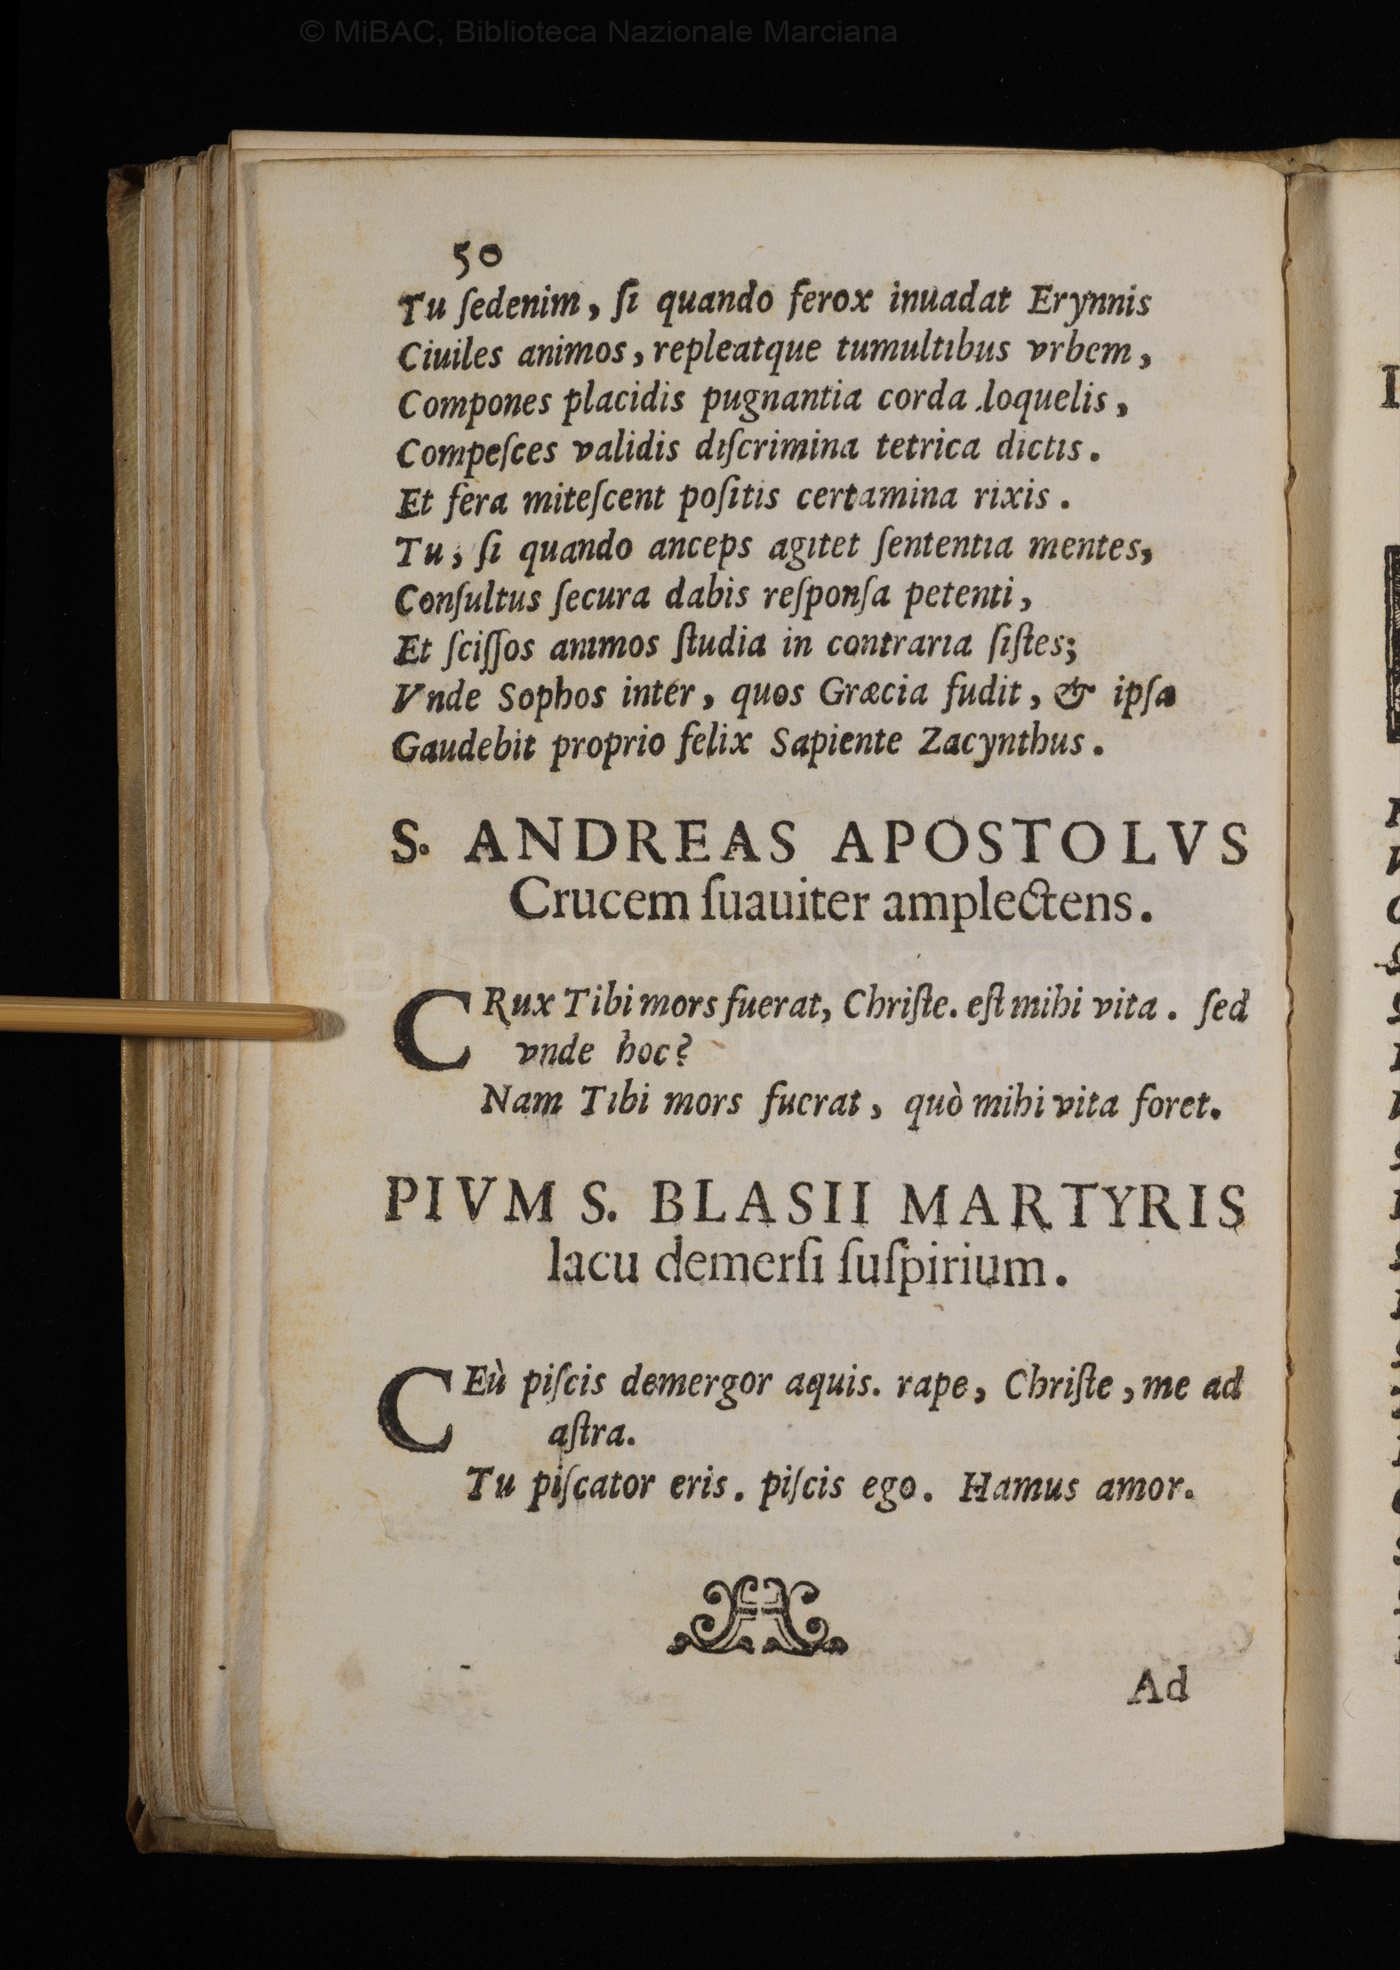 © MiBAC, Biblioteca Nazionale Marciana
50
Tu ſedenim, ſi quando ferox inuadat Erynnis
Ciuiles animos, repleatque tumultibus vrbem,
Compones placidis pugnantia corda loquelis,
Compeſces validis diſcrimina tetrica dictis.
Et fera miteſcent poſitis certamina rixis.
Tu, ſi quando anceps agitet ſententia mentes,
Conſultus ſecura dabis reſponſa petenti,
Et ſciſſos animos ſtudia in contraria ſiſtes;
Vnde Sophos inter, quos Græcia fudit, & ipſa
Gaudebit proprio felix Sapiente Zacynthus.
S. ANDREAS APOSTOLVS
Crucem ſuauiter amplectens.
CRux Tibi mors fuerat, Chriſte. eſt mihi vita. ſed
vnde hoc?
Nam Tibi mors fuerat, quò mihi vita foret.
PIVM S. BLASII MARTYRIS
lacu demerſi ſuſpirium.
CEù piſcis demergor aquis. rape, Chriſte, me ad
aſtra.
Tu piſcator eris. piſcis ego. Hamus amor.
Ad